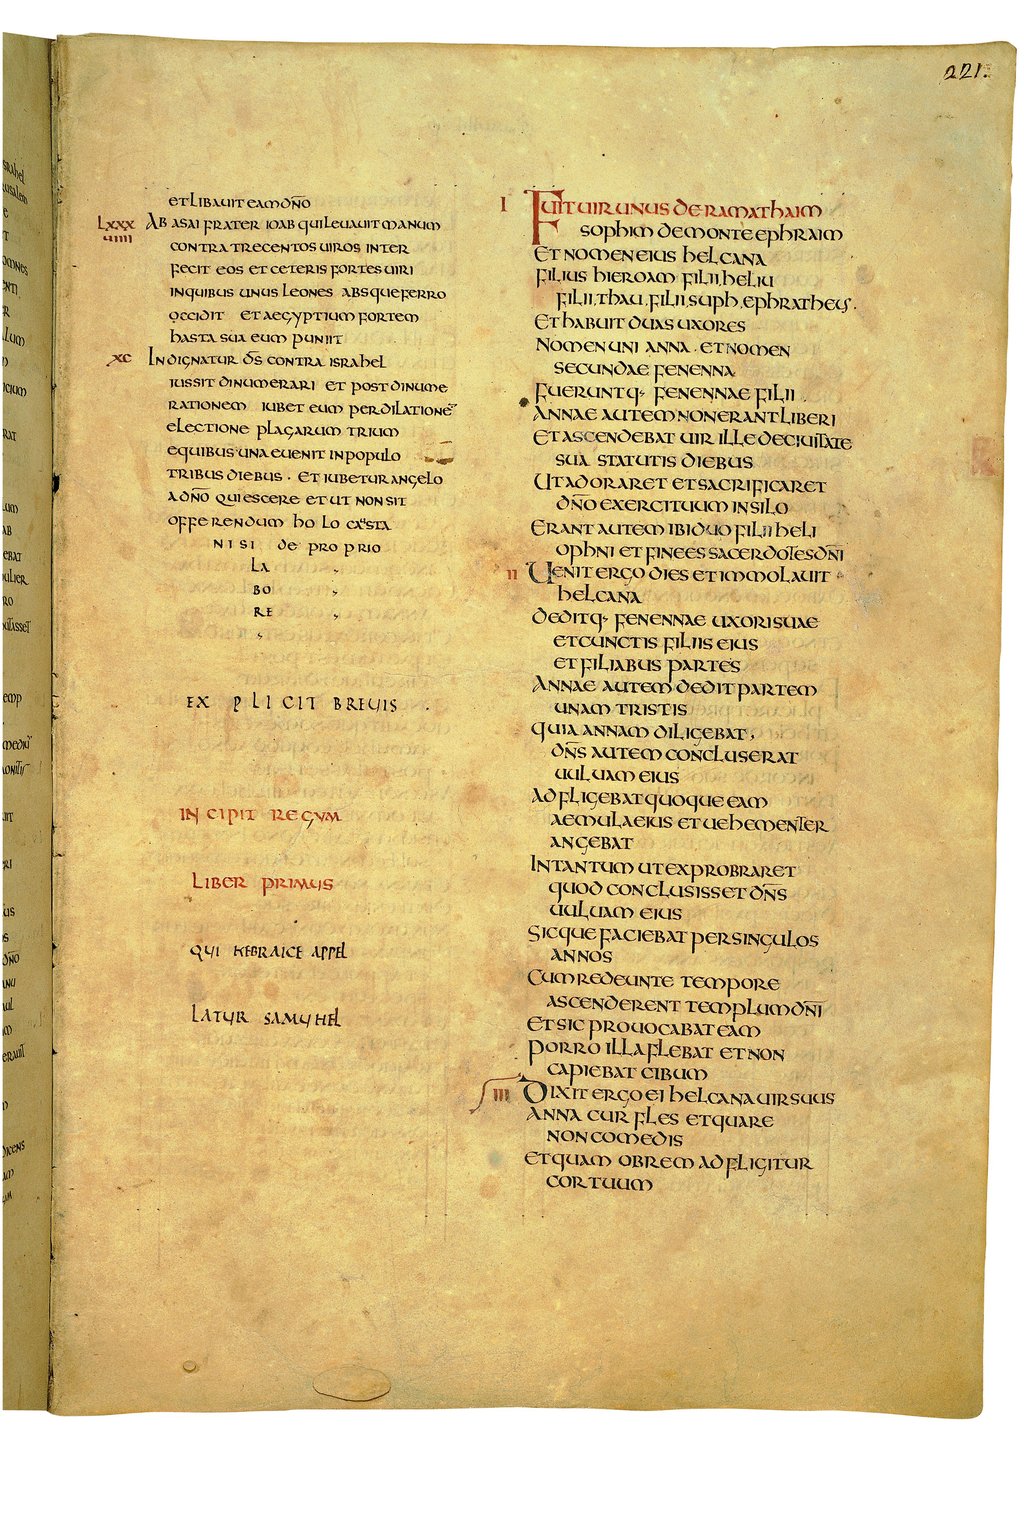 221.
ET LIBAUIT EAM DÑO
LXXXUIIII ABASAI FRATER IOAB QUI LEUAUIT MANUM
CONTRA TRECENTOS UIROS INTER
FECIT EOS ET CETERIS FORTES UIRI
INQUIBUS UNUS LEONES ABSQUE FERRO
OCCIDIT ET AEGYPTIUM FORTEM
HASTA SUA EUM PUNIIT
XC INDIGNATUR D̄S CONTRA ISRAHEL
IUSSIT DINUMERARI ET POST DINUME
RATIONEM IUBET EUM PER DILATIONĒ
ELECTIONE PLAGARUM TRIUM
EQUIBUS UNA EUENIT IN POPULO
TRIBUS DIEBUS · ET IUBETUR ANGELO
A DÑO QUIESCERE ET UT NON SIT
OFFERENDUM HOLOCAUSTA
NISI DE PROPRIO
LA
BO
RE
EXPLICIT BREUIS ·
INCIPIT REGUM
LIBER PRIMUS
QUI HEBRAICE APPEL
LATUR SAMUHEL
I FUIT UIR UNUS DE RAMATHAIM
SOPHIM DE MONTE EPHRAIM
ET NOMEN EIUS HELCANA
FILIUS HIEROAM FILII HELIU
FILII THAU FILII SUPH EPHRATHEUS.
ET HABUIT DUAS UXORES
NOMEN UNI ANNA · ET NOMEN
SECUNDAE FENENNA
FUERUNTQ· FENENNAE FILII
ANNAE AUTEM NON ERANT LIBERI
ET ASCENDEBAT UIR ILLE DE CIUITATE
SUA STATUTIS DIEBUS
UT ADORARET ET SACRIFICARET
DÑO EXERCITUUM IN SILO
ERANT AUTEM IBI DUO FILII HELI
OPHNI ET FINEES SACERDOTES DÑI
II UENIT ERGO DIES ET IMMOLAUIT
HELCANA
DEDITQ· FENENNAE UXORI SUAE
ET CUNCTIS FILIIS EIUS
ET FILIABUS PARTES
ANNAE AUTEM DEDIT PARTEM
UNAM TRISTIS
QUIA ANNAM DILIGEBAT,
DÑS AUTEM CONCLUSERAT
UULUAM EIUS
ADFLIGEBAT QUOQUE EAM
AEMULA EIUS ET UEHEMENTER
ANGEBAT
INTANTUM UT EXPROBRARET
QUOD CONCLUSISSET DÑS
UULUAM EIUS
SICQUE FACIEBAT PER SINGULOS
ANNOS
CUM REDEUNTE TEMPORE
ASCENDERENT TEMPLUM DÑI
ET SIC PROUOCABAT EAM
PORRO ILLA FLEBAT ET NON
CAPIEBAT CIBUM
III DIXIT ERGO EI HELCANA UIR SUUS
ANNA CUR FLES ET QUARE
NON COMEDIS
ET QUAM OBREM ADFLIGITUR
COR TUUM